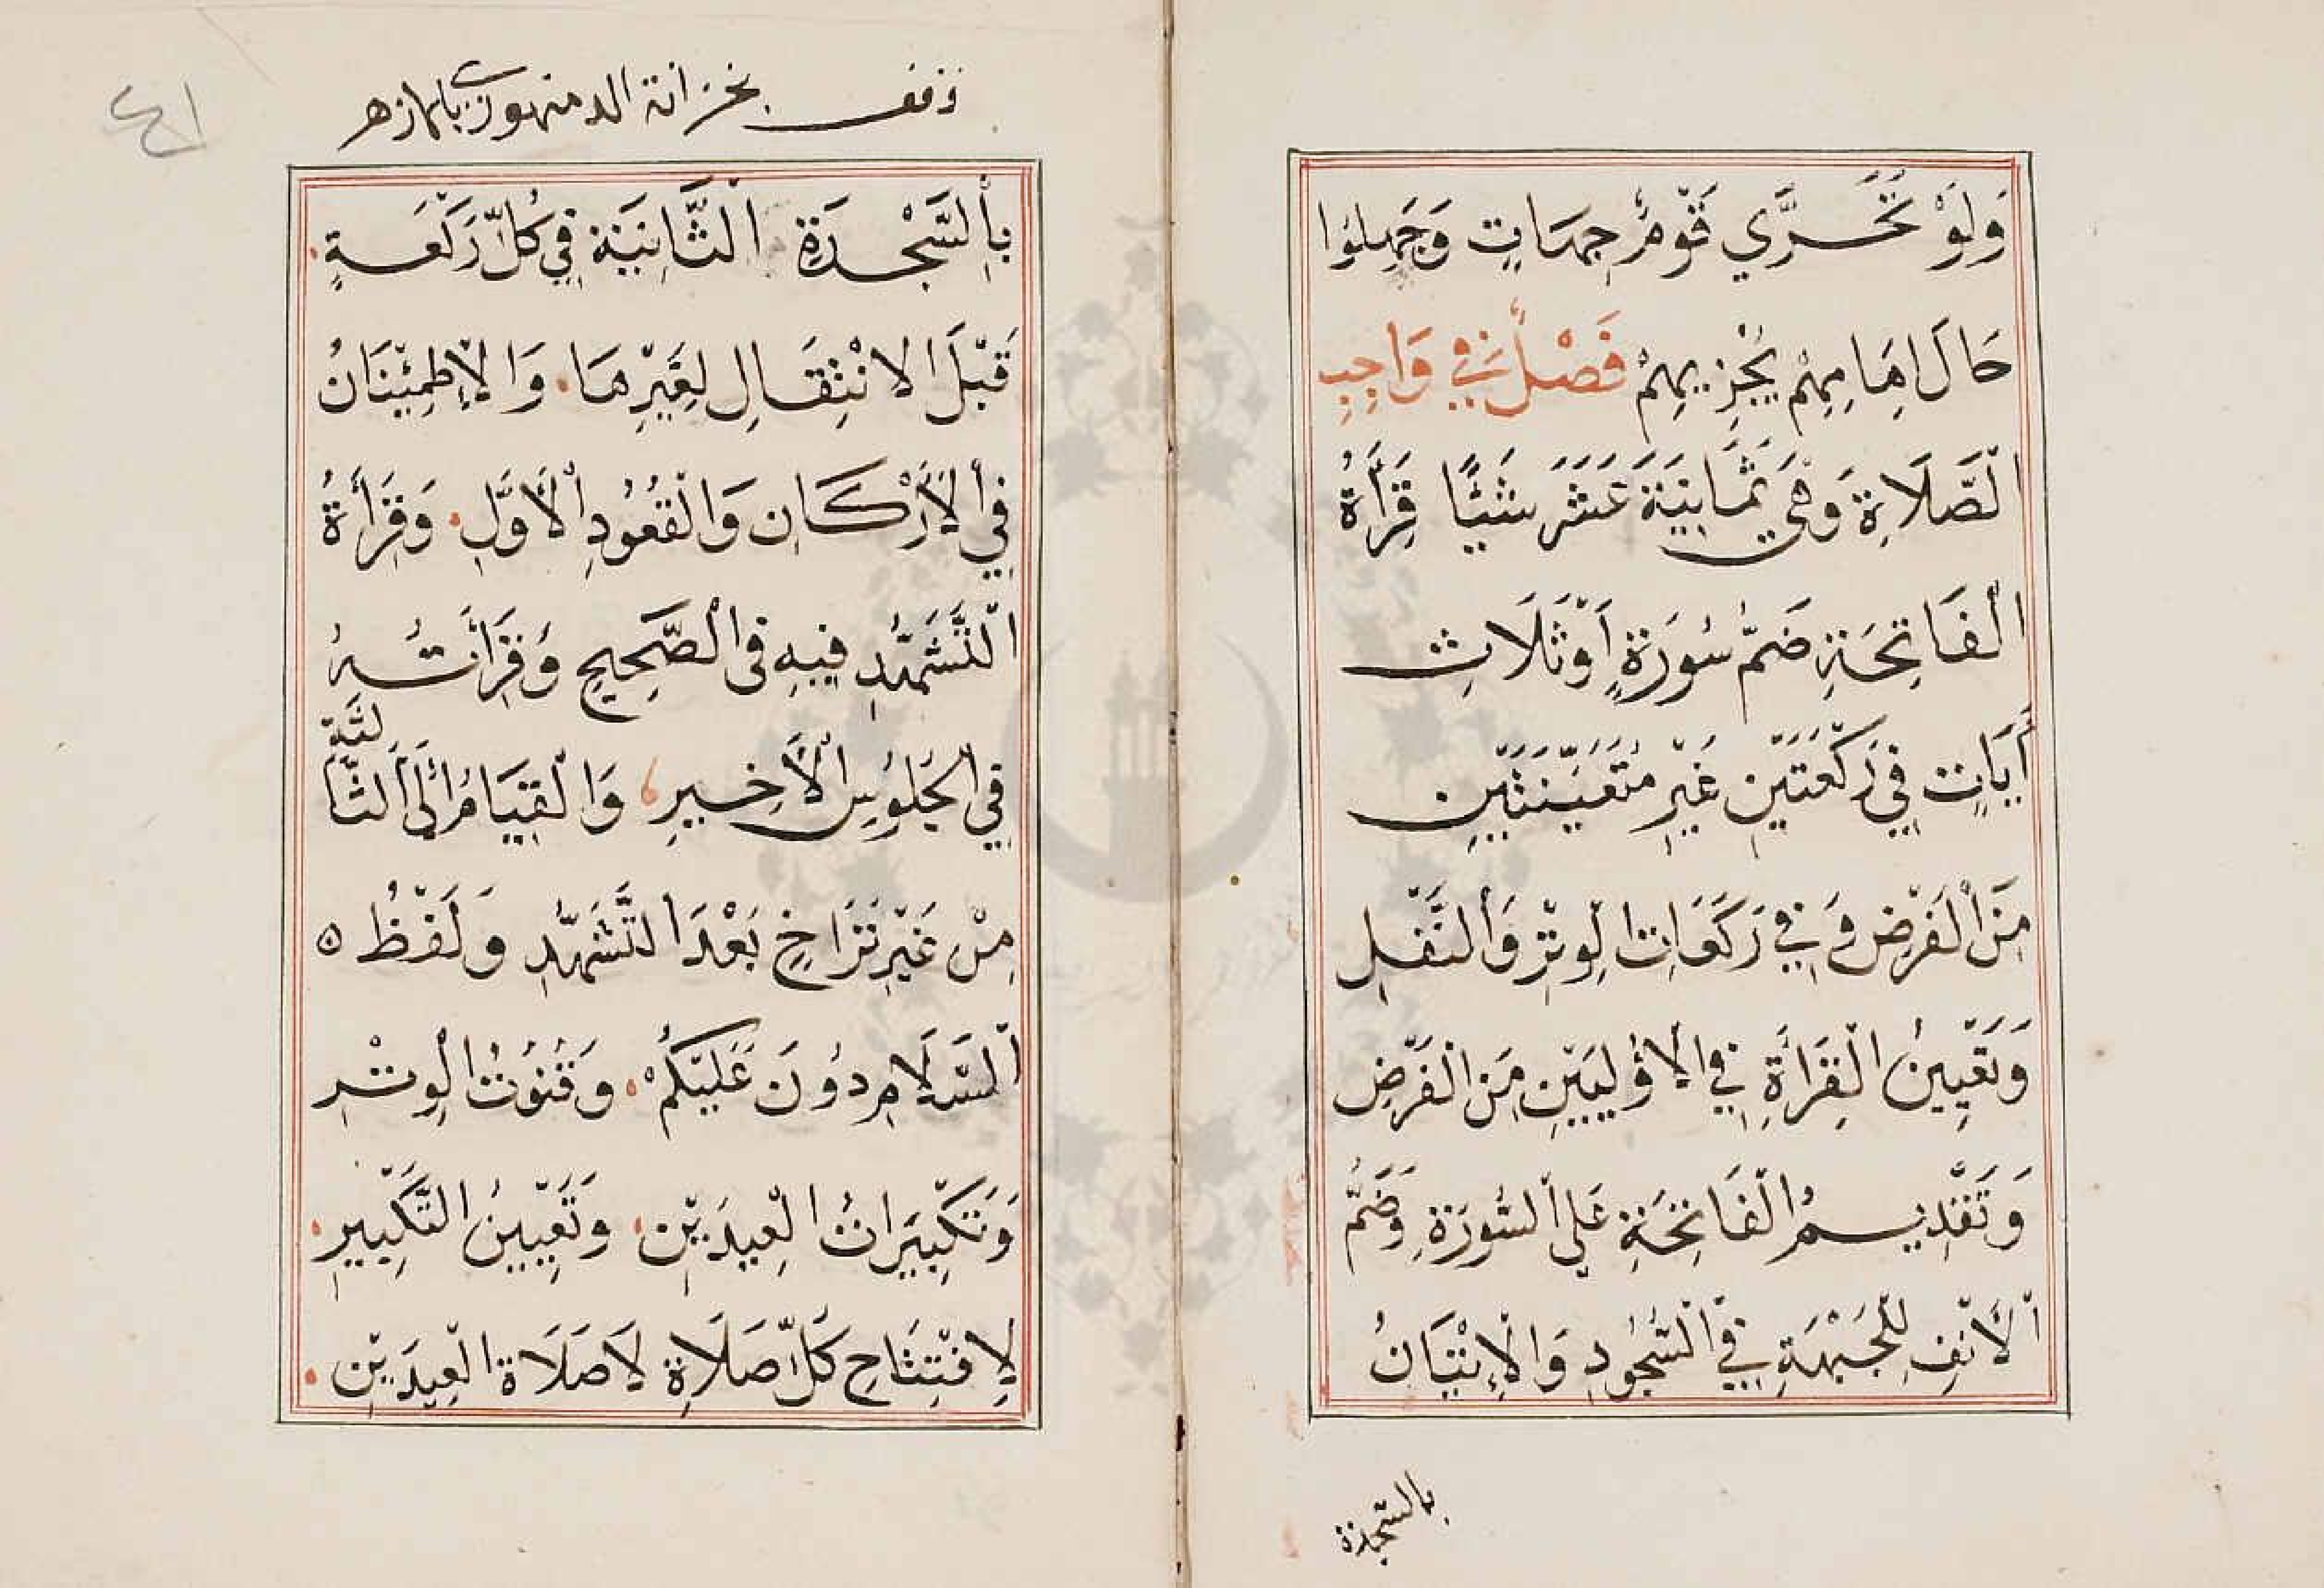 وَلَوْ تَحَرَّي قَوْمٌ جِهَاتٍ وَجَهِلُوا
حَالَ اِمَامِهِمْ يُجْزِيهِمْ فَصْلٌ فِي وَاجِبِ
الْصَّلَاةِ وَهِيَ ثَمَانِيَةَ عَشَرَ شَيْئًا قِرَأَةُ
الْفَاتِحَةِ ضَمُّ سُورَةٍ أَوْ ثَلَاثِ
أَيَاتٍ فِي رَكْعَتَيْنِ غَيْرِ مُتَعَيِّنَتَيْنِ
مِنَ الْفَرْضِ وَفِي رَكَعَاتِ الْوِتْرِ وَالنَّفْلِ
وَتَعْيِينُ الْقِرَأَةِ فِي الأُولَيَيْنِ مِنَ الْفَرْضِ
وَتَقْدِيمُ الْفَاتِحَةِ عَلَي السُّورَةِ وَضَمُّ
الْأَنْفِ لِلْجَبْهَةِ فِي السُّجُودِ وَالْإِتْيَانُ
بالسجدة
وقف بخزانة الدمنهوري بالازهر
بِالسَّجْدَةِ الْثَّانِيَةِ فِي كُلِّ رَكْعَةٍ
قَبْلَ الانْتِقَالِ لِغَيْرِهَا وَالْإِطْمِئْنَانُ
فِي الْأَرْكَانِ وَالْقُعُودِ الْأَوَّلِ وَقِرَأَةُ
الْتَّشَهُّدِ فِيهِ فى الْصَّحِيحِ وَقِرَأَتُهُ
فِي الْجُلُوسِ الْأَخِيرِ وَالْقِيَامُ إِلَى الثَّالِثَةِ
مِنْ غَيْرِ تَرَاخٍ بَعْدَ التَّشَهُّدِ وَلَفْظُ ه
الْسَّلَامِ دُونَ عَلَيْكُمْ وَقُنُوتُ الْوِتْرِ
وَتَكْبِيرَاتُ الْعِيدَيْنِ وَتَعْيِينُ التَّكْبِيرِ
لِافْتِتَاحِ كُلِّ صَلَاةٍ لَا صَلَاةَ الْعِيدَيْنِ